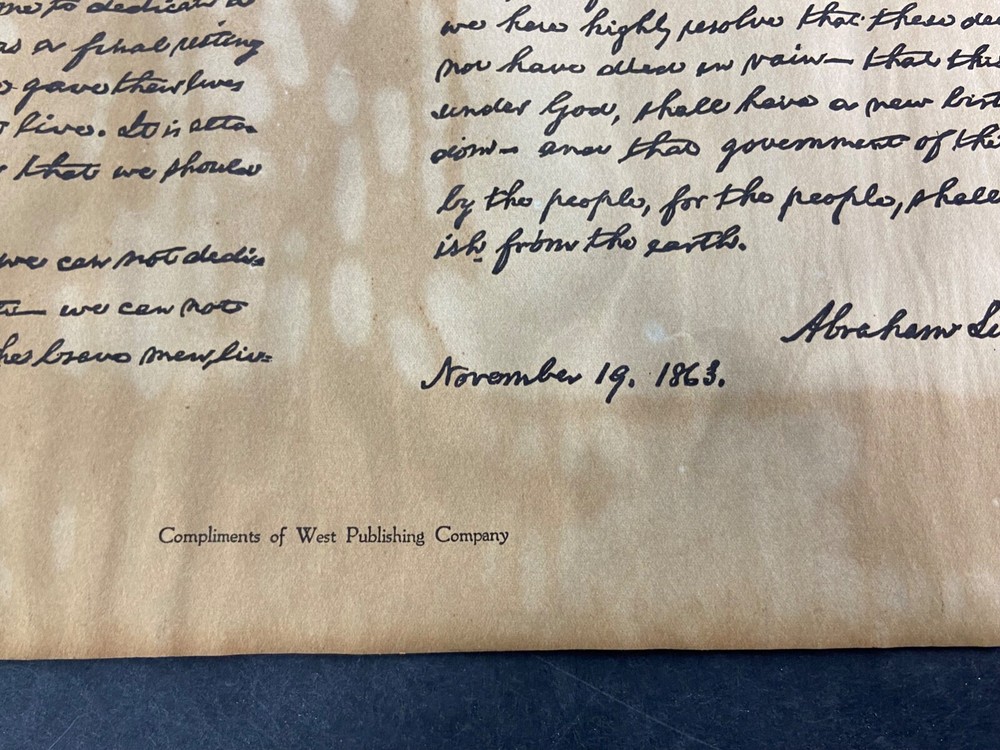 me to dedicate a
as a final resting
gave their lives
live. It is alto-
that we should
we can not dedi-
we can not
brave men, liv-
we here highly resolve that these de
not have died in vain— that this
under God, shall have a new birt
dom— and that government of the
by the people, for the people, shall
ish from the earth.
Abraham Li
November 19. 1863.
Compliments of West Publishing Company